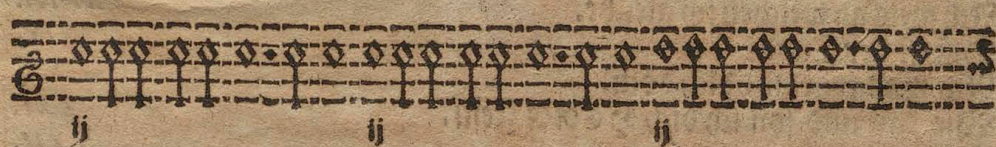 ij ij ij